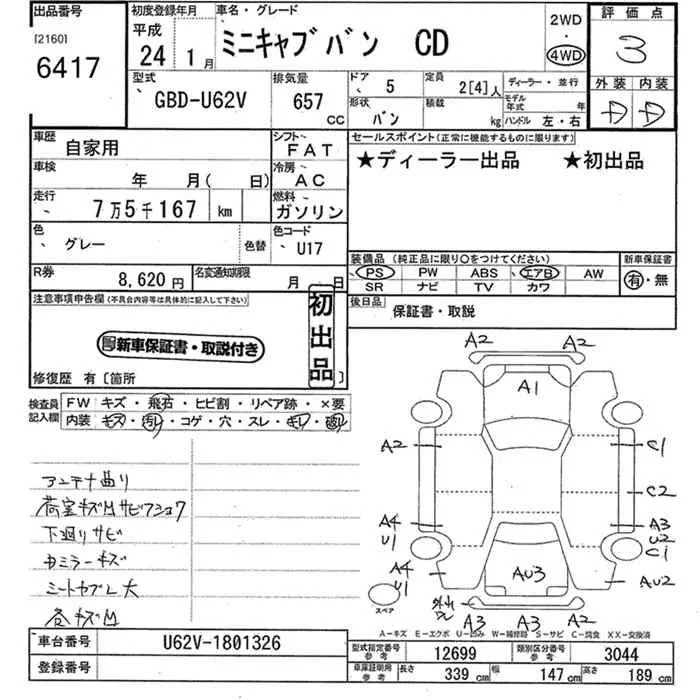 出品番号
[2160]
6417
初度登録年月
平成
24 1月
車名・グレード
ミニキャブバン CD
2WD
・
4WD
評価点
3
外装 内装
D D
型式
GBD-U62V
排気量
657
CC
ドア
5
形状
バン
定員
2[4]人
積載
kg
ディーラー・並行
モデル年式 年
ハンドル 左・右
車歴
自家用
シフト
FAT
車検
年 月( 日)
冷房
AC
走行
7万5千167 km
燃料
ガソリン
色
グレー
色替
色コード
U17
R券
8,620円
名変通知期限
月 日
セールスポイント(正常に機能するものに限ります)
★ディーラー出品 ★初出品
装備品(純正品に限り○をつけてください)
PS PW ABS エアB AW
SR ナビ TV カワ
新車保証書
有・無
後日品
保証書・取説
注意事項申告欄(不具合内容等は具体的に記入して下さい)
初出品
新車保証書・取説付き
修復歴 有〔箇所 〕
検査員記入欄
FW キズ・飛石・ヒビ割・リペア跡・×要
内装 キズ・汚れ・コゲ・穴・スレ・
アンテナ曲り
荷室キズMサビ
下廻りサビ
ミラーキズ
各キズM
A2
A2
A1
A2
C1
C2
A4
U1
A3
U2
C1
A4
U1
AU3
AU2
スペア
A3 A3 A2
A-キズ E-エクボ U-凹み W-補修跡 S-サビ C-腐食 XX-交換済
車台番号
U62V-1801326
登録番号
型式指定番号
参考
12699
類別区分番号
参考
3044
車庫証明用
参考
長さ 339 cm 幅 147 cm 高さ 189 cm